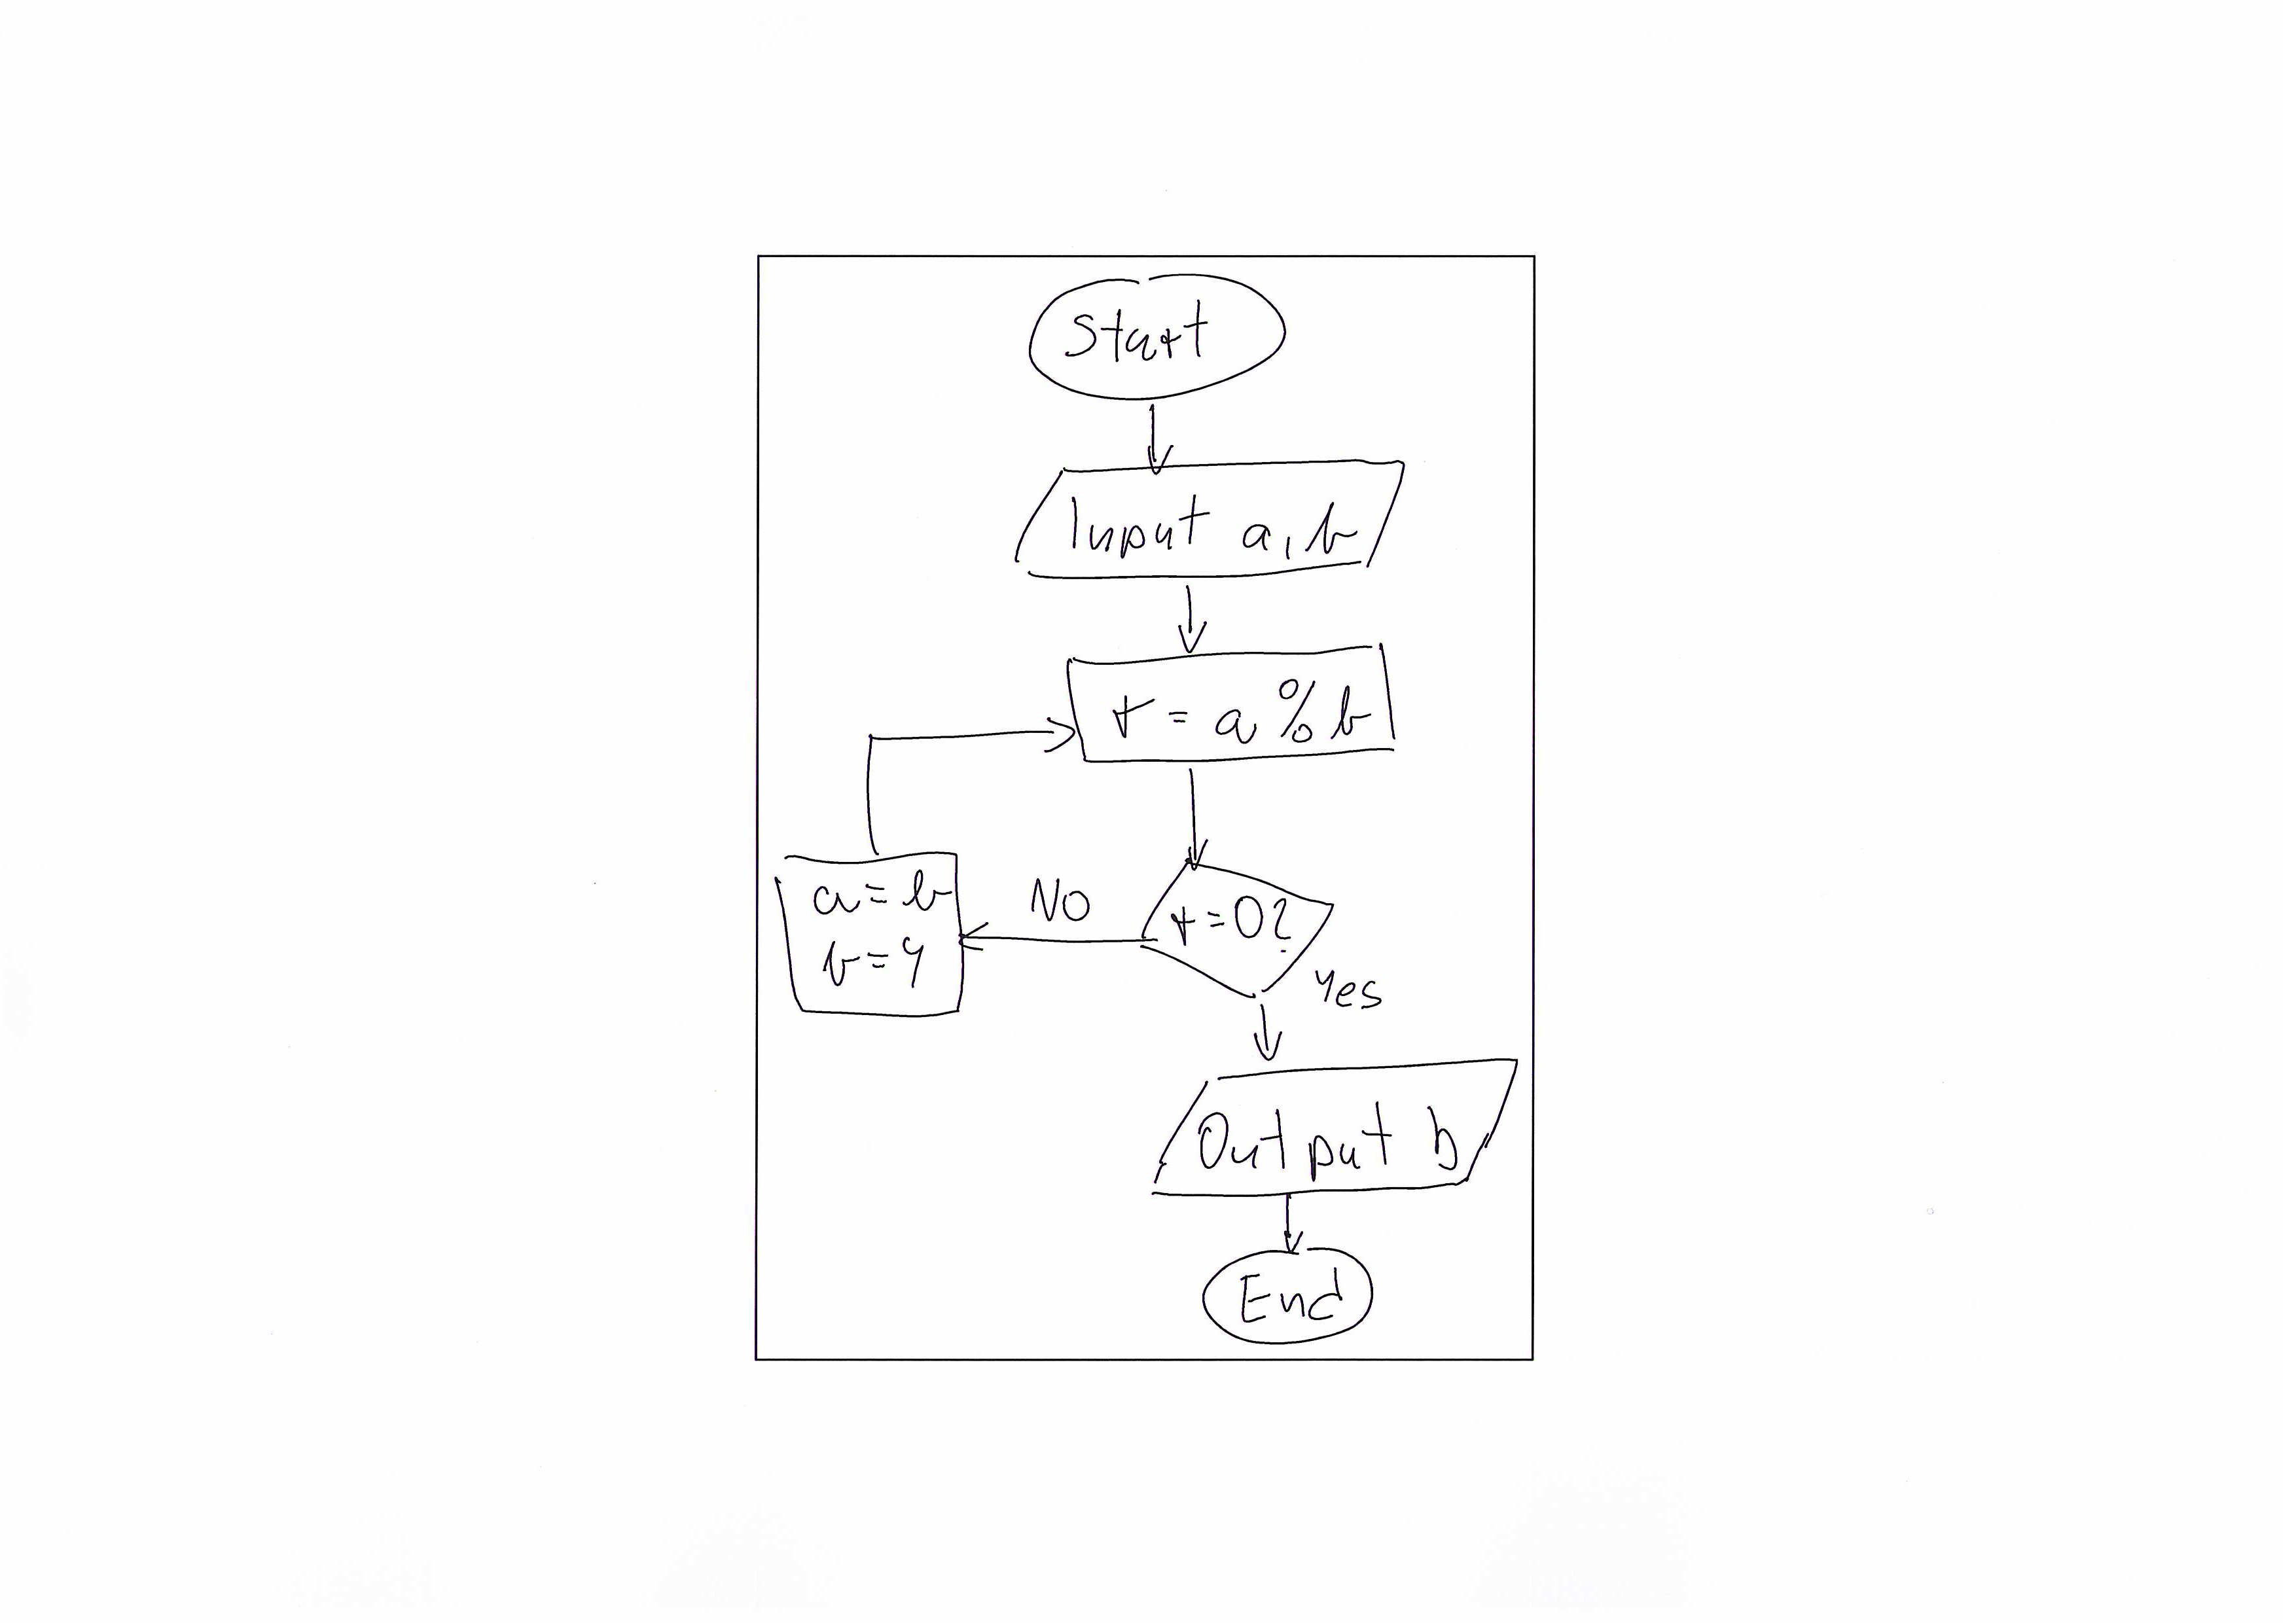 Start
Input a, b
r = a % b
r = 0?
NO
a = b
b = r
Yes
Output b
End